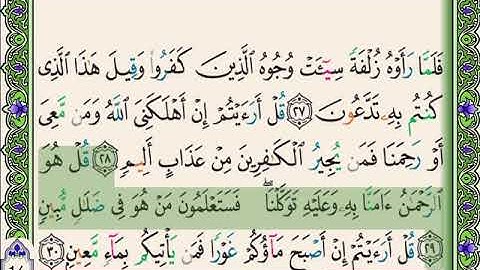 فَلَمَّا رَأَوْهُ زُلْفَةً سِيٓـَٔتْ وُجُوهُ الَّذِينَ كَفَرُوا وَقِيلَ هَذَا الَّذِى
كُنتُم بِهِۦ تَدَّعُونَ ﴿٢٧﴾ قُلْ أَرَءَيْتُمْ إِنْ أَهْلَكَنِىَ اللَّهُ وَمَن مَّعِىَ
أَوْ رَحِمَنَا فَمَن يُجِيرُ الْكَٰفِرِينَ مِنْ عَذَابٍ أَلِيمٍ ﴿٢٨﴾ قُلْ هُوَ
الرَّحْمَٰنُ ءَامَنَّا بِهِۦ وَعَلَيْهِ تَوَكَّلْنَا ۖ فَسَتَعْلَمُونَ مَنْ هُوَ فِى ضَلَٰلٍ مُّبِينٍ
﴿٢٩﴾ قُلْ أَرَءَيْتُمْ إِنْ أَصْبَحَ مَآؤُكُمْ غَوْرًا فَمَن يَأْتِيكُم بِمَآءٍ مَّعِينٍ ﴿٣٠﴾